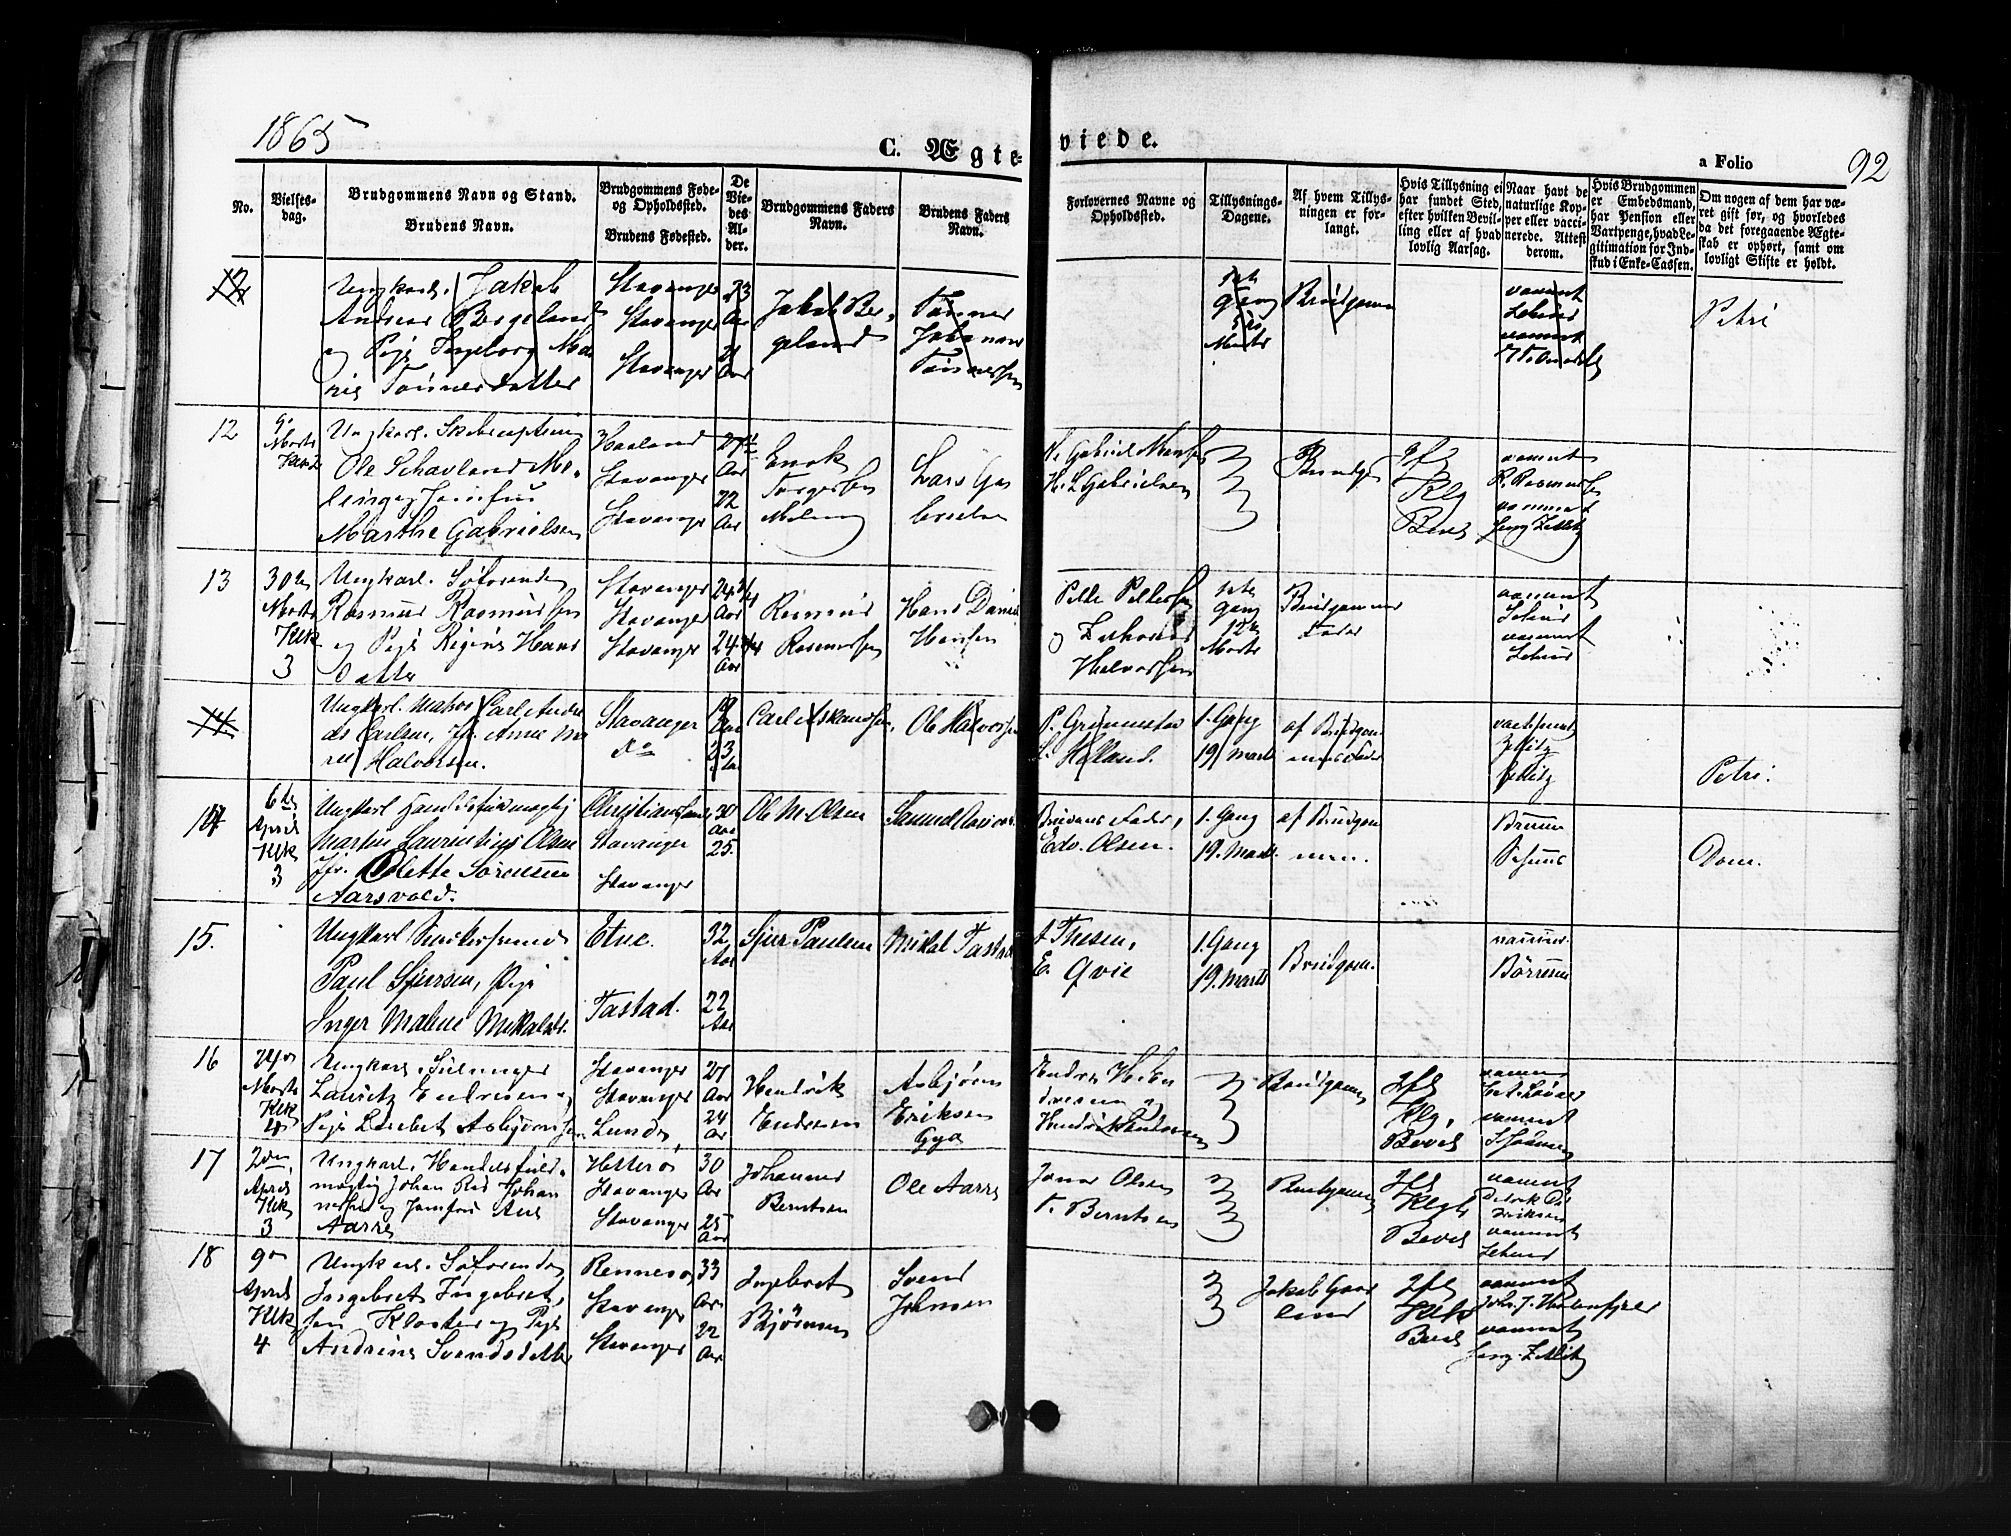 1865
C. Ægte-
viede.
a Folio
92
No.
Vielses-
dag.
Brudgommens Navn og Stand.
Brudens Navn.
Brudgommens Føde-
og Opholdssted.
Brudens Fødested.
De
Vie-
des
Al-
der.
Brudgommens Faders
Navn.
Brudens Faders
Navn.
Forlovernes Navne og
Opholdssted.
Tillysnings-
Dagene.
Af hvem Tillys-
ningen er for-
langt.
Hvis Tillysning ei
har fundet Sted,
efter hvilken Bevil-
ling eller af hvad
lovlig Aarsag.
Naar havt de
naturlige Kop-
per eller vacci-
nerede. Attest
derom.
Hvis Brudgommen
er Embedsmand,
har Pension eller
Vartpenge, hvad Le-
gitimation for Ind-
skud i Enke-Cassen.
Om nogen af dem har væ-
ret gift før, og hvorledes
da det foregaaende Ægte-
skab er ophørt, samt om
lovligt Skifte er holdt.
12
Ungkarl. Jakob
Andreas Bergeland
og Pige Ingeborg Ma
rie Tønnesdatter
Stavanger
Stavanger
Stavanger
23
Aar
21
Aar
Jakob Ber-
geland
Tønnes
Johannes
Tønnessen
1ste
Gang
5te
Marts
Brudgommen
vaccinert
vaccinert
Petri
12
9de
Marts
Ungkarl.
Ole Schavland Me-
ling og Jomfru
Marthe Gabrielsen
Haaland
Stavanger
Stavanger
27
Aar
22
Aar
Enok
Torgersen
Meling
Lars Ga
brielsen
H. L. Gabrielsen
Brudg
Klg
Bevil
vaccinert
R. Rasmussen
vaccinert
13
30te
Marts
Klk
3
Ungkarl. Søfarende
Rasmus Rasmussen
og Pige Regine Hans
Datter
Stavanger
Stavanger
Stavanger
24 3/4
Aar
24 3/4
Aar
Rasmus
Rasmussen
Hans Daniel
Hansen
Peder Pedersen
og Zakarias
Halvorsen
1ste
Gang
12te
Marts
Brudgommens
Fader
vaccinert
vaccinert
14
Ungkarl. Matros Carl Andre
as Carlsen, Jfr. Anne Ma
rie Halvorsen.
Stavanger
do
19
Aar
23
Aar
Carl Askansen,
Ole Halvorsen
P. Grønnestad
L. Holland.
1. Gang
19 Marts
af Brudgom
mens Fader
Petri.
14
6te
April
Klk
3
Ungkarl Handelsfuldmægtig
Martin Lauritius Olsen
Jfr. Olette Sørensen
Aarsvold.
Christianssand
Stavanger
Stavanger
30
Aar
25.
Ole M. Olsen
Brudens Fader,
Edv. Olsen.
1. Gang
19. Marts.
af Brudgom
men.
Dom.
15.
Ungkarl
Paul Sjursen, Pige
Inger Malene Mikalsdr.
Etne.
Tastad.
32
Aar
22
Aar
Sjur Paulsen
Mikal Tastad
A Thesen,
E. Qvie
1. Gang
19. Marts
Brudgom.
16
Marts
Klk
4
Ungkarl.
Lauritz Endresen og
Pige Lisebet Asbjørnsen
Stavanger
Stavanger
Lunde,
27
Aar
24
Ar
Hendrik
Endresen
Asbjørn
Eriksen
Gya
Endre H. En
dresen og
Hendrik Endresen
Brudgommen
Klg,
Bevil
17
2den
April
Klk
3
Ungkarl. Handelsfuld-
mægtig Johan Johan
nessen og Jomfru Ane
Aarre
Hitterø
Stavanger
Stavanger
30
Aar
25
Aar
Johannes
Berntsen
Ole Aarre
Jonas Olsen
T. Berntsen
Brudgommen
Klg
Bevil
vaccinert
vaccinert
18
9de
April
Klk
4
Ungkarl. Søfarende
Ingebret Ingebret-
sen Kloster og Pige
Andrine Svendsdatter
Rennesø
Stavanger
Stavanger
33
Aar
22
Aar
Ingebret
Bjørnsen
Svend
Johnsen
Jakob Gaas
land
Bevil
vaccinert
vaccinert